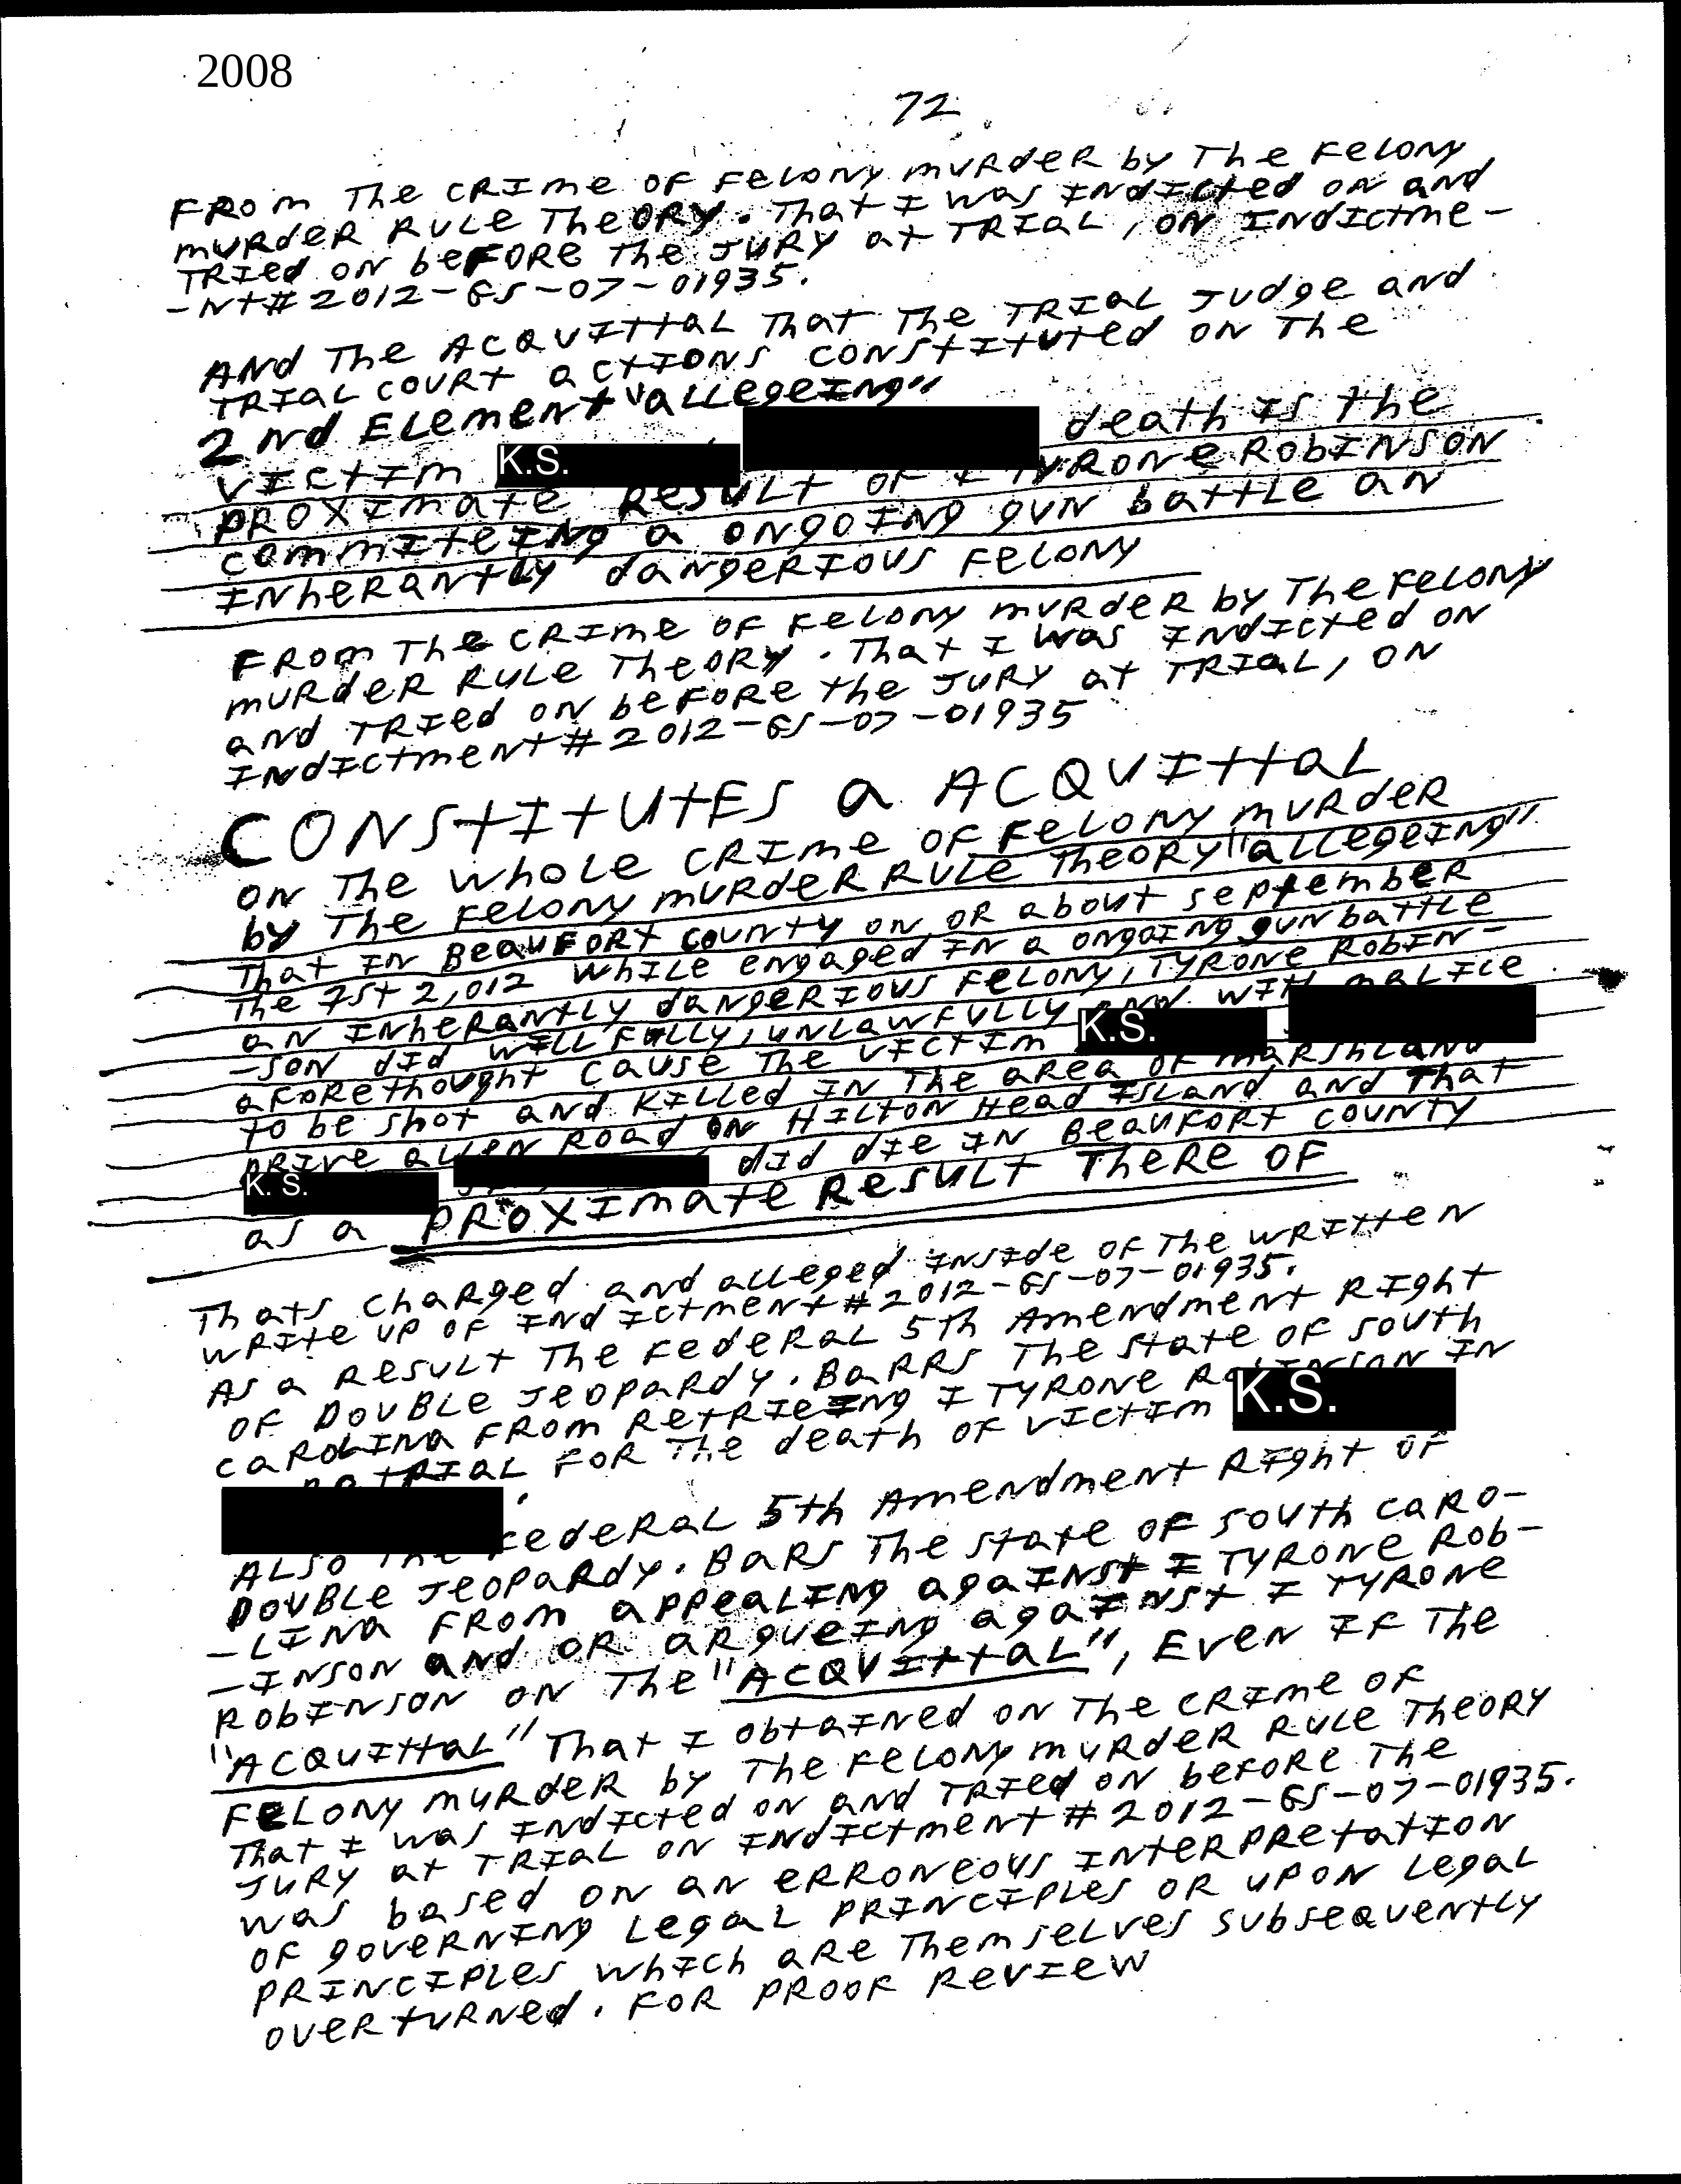 2008
72
FROM The CRIme OF FeLONy mURdeR by The FeLONy
mURdeR RULe TheORy. That I was INdIcted ON and
TRIed ON beFORe The JURy at TRIaL, ON INdIctme-
-Nt# 2012-GS-07-01935.
ANd The ACQUIttaL That The TRIaL Judge and
TRIaL COURt actIONS CONStItuted ON The
2Nd ELement "aLLegeINg"
VIctIm K.S. death IS the
PROXImate ReSULt OF I TyRONe RobINSON
CommIteINg a ONgOING gUN battLe aN
INheRaNtLy daNgeRIOUS FeLONy
FROm The CRIme OF FeLONy mURdeR by The FeLONy
mURdeR RULe TheORy. That I was INdIcted ON
and TRIed ON beFORe the JURy at TRIaL, ON
INdIctment# 2012-GS-07-01935
CONStItUtES a ACQUIttaL
ON The whOLe CRIme OF FeLONy mURdeR
by The FeLONy mURdeR RULe TheORy "aLLegeINg"
That IN BeaUFORt COUNty ON OR about September
The 1st 2,012 whILe eNgaged IN a ONgOINg gUNbattLe
aN INheRaNtLy daNgeRIOUS FeLONy, TyRONe RobIN-
-SON dId wILLFULLy, UNLawFULLy and wIth maLIce
aFORethOUght CaUSe The VIctIm K.S.
to be Shot and KILLed IN The aRea OF maRShLaNd
DRIve aLLeN ROad ON HILtON Head ISLaNd and That
K. S. dId dIe IN BeaUFORt COUNty
as a PROXImate ReSULt TheRe OF
Thats chaRged and aLLeged INSIde OF The wRItteN
wRIte UP OF INdIctment# 2012-GS-07-01935.
AS a ReSULt The FedeRaL 5th AmeNdmeNt RIght
OF DOUBLe JeOPaRdy. BaRRS The State OF SOUth
CaROLINa FROm RetRIeINg I TyRONe RobINSON IN
a ReTRIaL FOR The death OF VIctIm K.S.
.
ALSO The FedeRaL 5th AmeNdmeNt RIght OF
DOUBLe JeOPaRdy. BaRS The State OF SOUth CaRO-
-LINa FROm aPPeaLINg agaINSt I TyRONe ROb-
-INSON and OR aRgUeINg agaINSt I TyRONe
RobINSON ON The "ACQUIttaL", EveN IF The
"ACQUIttaL" That I ObtaINed ON The CRIme OF
FeLONy mURdeR by The FeLONy mURdeR RULe TheORy
That I was INdIcted ON and TRIed ON beFORe The
JURy at TRIaL ON INdIctment# 2012-GS-07-01935.
was based ON aN eRRONeOUS INteRPRetatION
OF gOveRNINg LegaL PRINCIPLeS OR UPON LegaL
PRINCIPLeS whIch aRe TheMSeLveS SUbSeqUeNtLy
OveRtURNed. FOR PROOF RevIew